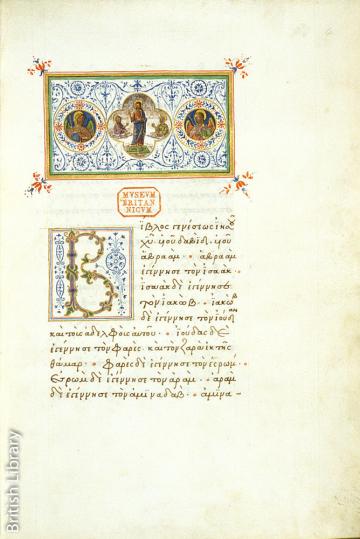 MVSEVM
BRITAN
NICVM
Βίβλος γενέσεως ιυ
χυ. υιου δαβιδ. υιου
αβραάμ · αβραὰμ
ἐγέννησε τὸν ισαάκ ·
ισαὰκ δὲ ἐγέννησε
τὸν ιακώβ · ιακὼβ
δὲ ἐγέννησε τὸν ιούδαν
καὶ τοὺς αδελφοὺς αυτου · ιούδας δὲ
ἐγέννησε τὸν φαρὲς. καὶ τὸν ζαρὰ ἐκ της
θάμαρ · φαρὲς δὲ ἐγέννησε τὸν ἐσρώμ ·
ἐσρὼμ δὲ ἐγέννησε τὸν ἀράμ · ἀρὰμ
δὲ ἐγέννησε τὸν ἀμιναδάβ · ἀμινα-
British Library